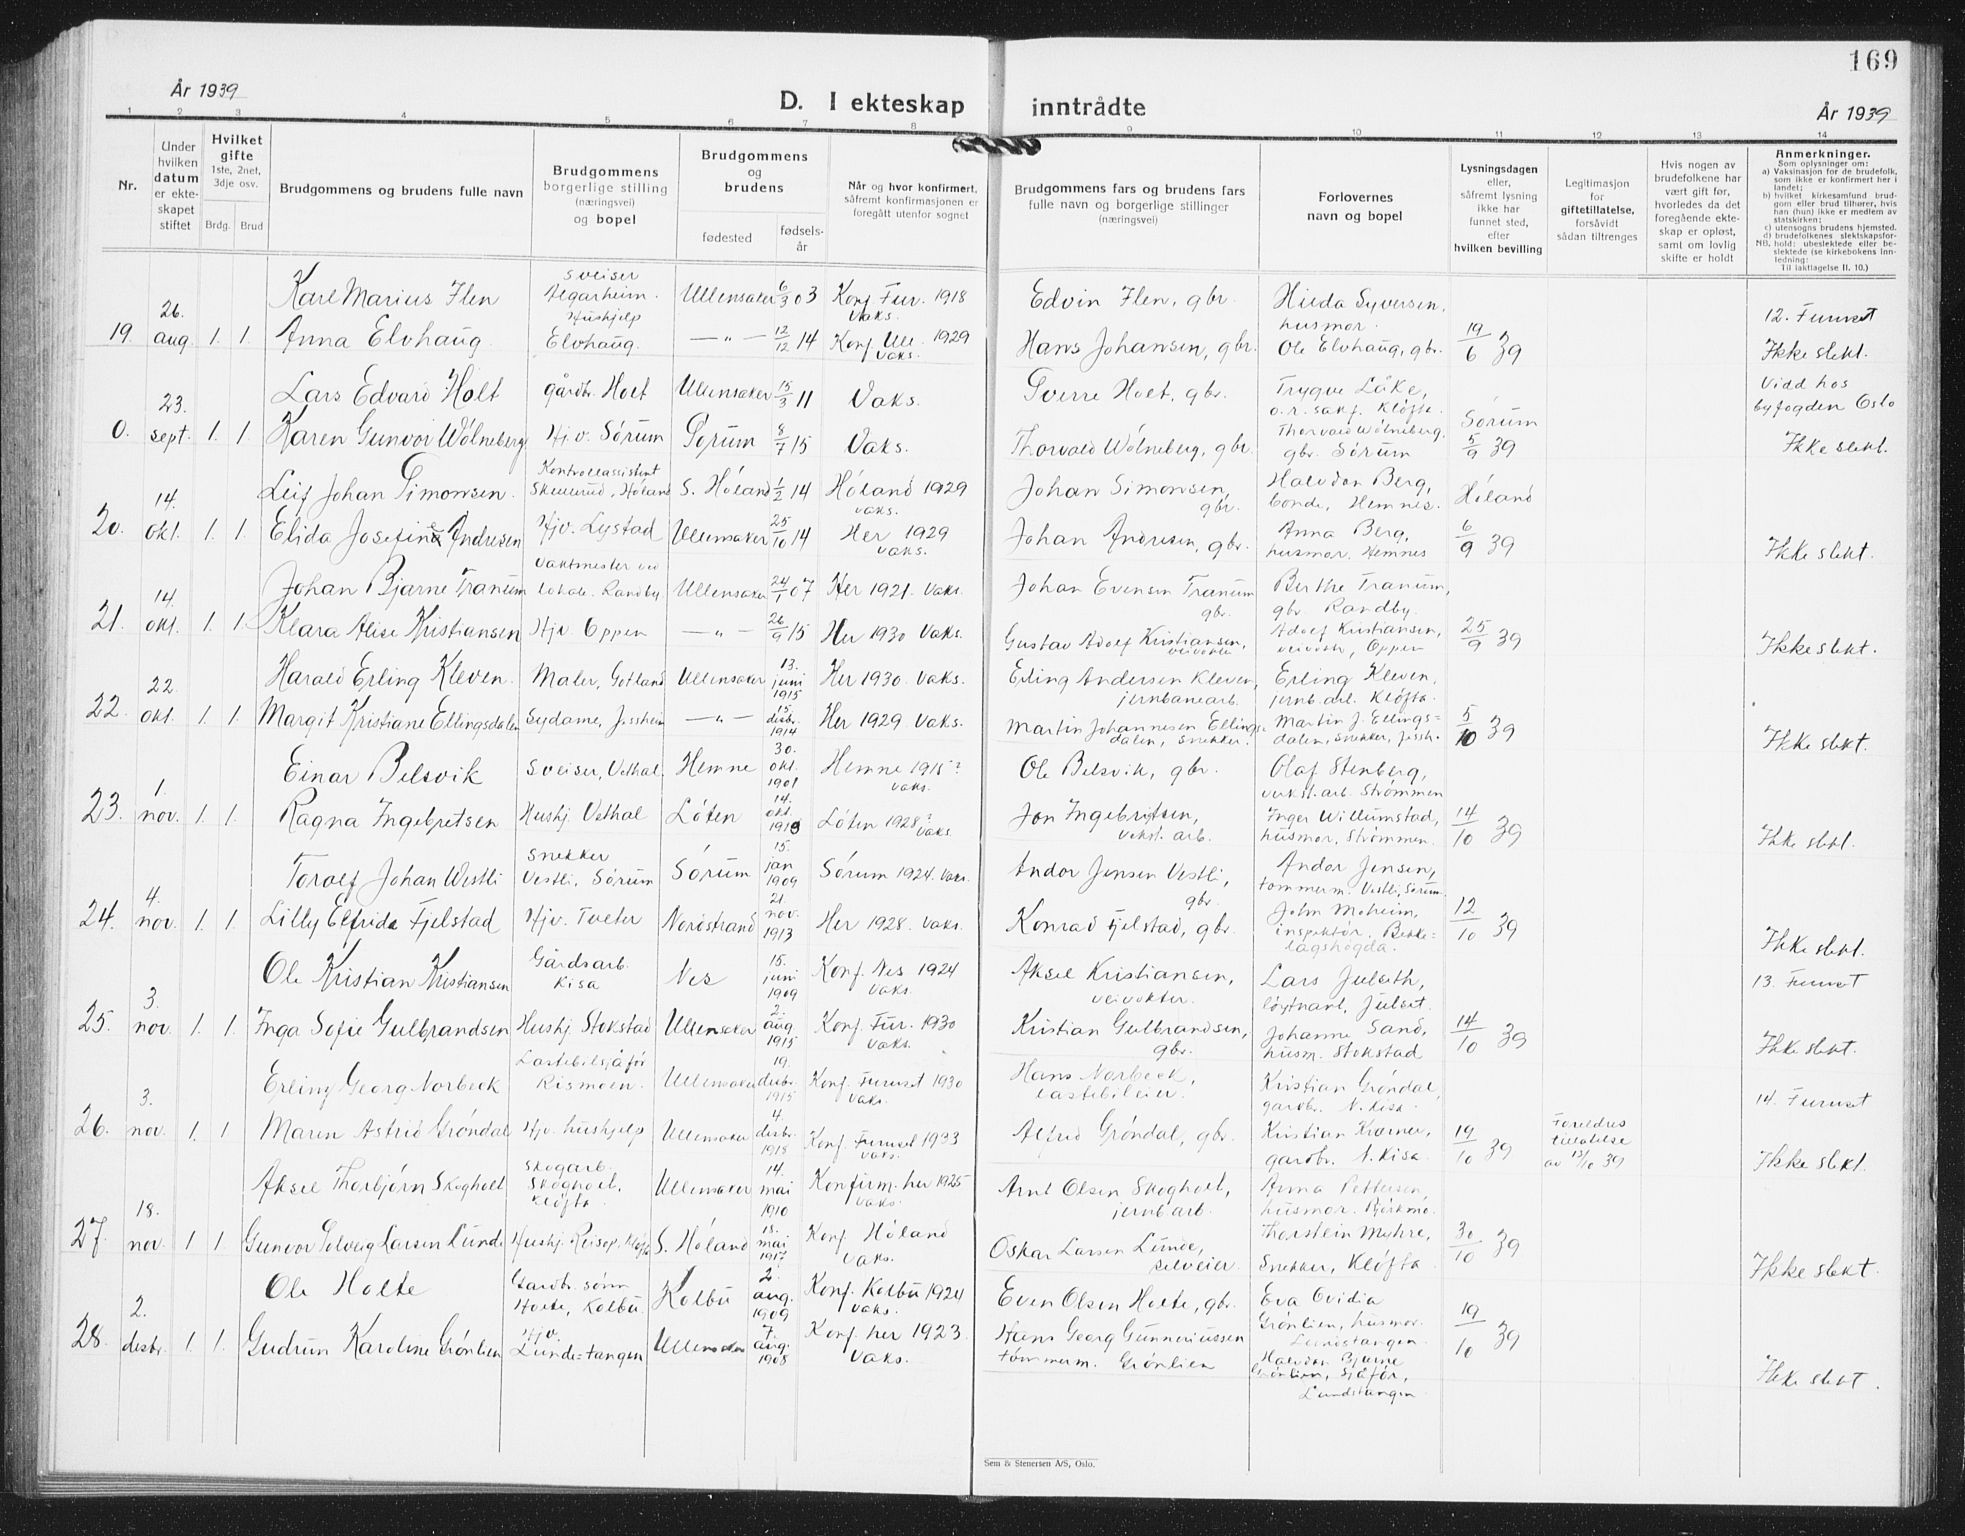 169
År 1939
D. I ekteskap inntrådte
År 1939
1 2 3 4 5 6 7 8 9 10 11 12 13 14
Nr.
Under hvilken datum er ekteskapet stiftet
Hvilket gifte 1ste, 2net, 3dje osv.
Brdg. Brud
Brudgommens og brudens fulle navn
Brudgommens borgerlige stilling (næringsvei) og bopel
Brudgommens og brudens
fødested
fødselsår
Når og hvor konfirmert, såfremt konfirmasjonen er foregått utenfor sognet
Brudgommens fars og brudens fars fulle navn og borgerlige stillinger (næringsvei)
Forlovernes navn og bopel
Lysningsdagen eller, såfremt lysning ikke har funnet sted, efter hvilken bevilling
Legitimasjon for giftetillatelse, forsåvidt sådan tiltrenges
Hvis nogen av brudefolkene har vært gift før, hvorledes da det foregående ekteskap er opløst, samt om lovlig skifte er holdt
Anmerkninger.
Som oplysninger om:
a) Vaksinasjon for de brudefolk, som ikke er konfirmert her i landet;
b) hvilket kirkesamfund brudgom eller brud tilhører, hvis han (hun) ikke er medlem av statskirken;
c) utensogns brudens hjemsted.
d) brudefolkenes slektskapsforhold: ubeslektede eller beslektede (se kirkebokens innledning:
NB. Til iakttagelse II. 10.)
19. 26. aug 1. 1.
Karl Marius Ilen Sveiser Algarheim. Ullensaker 6/3 03 Konf Fur. 1918 Vaks. Edvin Ilen, gbr. Hilda Syversen, husmor. 12. Furuset
Anna Elvhaug. Hushjelp Elvhaug. —"— 12/12 14 Konf. Ull. 1929 vaks. Hans Johansen, gbr. Ole Elvhaug, gbr. 19/6 39 Ikke slekt.
0. 23. sept. 1. 1.
Lars Edvard Holt gårdbr. Holt Ullensaker 15/3 11 Vaks. Sverre Holt, gbr. Trygve Låke, o.r. sakf. Kløfta. Vidd hos byfogden Oslo
Karen Gunvor Wölneberg Hjv. Sørum Sørum 8/7 15 Vaks. Thorvald Wölneberg, gbr. Thorvald Wölneberg, gbr. Sørum Sørum 5/9 39 Ikke slekt.
20. 14. okt. 1. 1.
Leif Johan Simonsen. Kontrollassistent Skullerud, Høland S. Høland 1/2 14 Høland 1929 vaks. Johan Simonsen, gbr. Halvdan Berg, bonde, Hemnes. Høland
Elida Josefine Andresen Hjv. Lystad Ullensaker 25/10 14 Her 1929 vaks. Johan Andresen, gbr. Anna Berg, husmor, Hemnes 6/9 39 Ikke slekt.
21. 14. okt. 1. 1.
Johan Bjarne Tranum Vaktmester ved lokale. Randby Ullensaker 24/1 07 Her 1921. vaks. Johan Evensen Tranum gbr. Berthe Tranum, gbr. Randby.
Klara Alise Kristiansen Hjv. Oppen —"— 26/9 15 Her 1930 Vaks. Gustav Adolf Kristiansen, veivokter Adolf Kristiansen, veivokt., Oppen 25/9 39 Ikke slekt.
22. 22. okt. 1. 1.
Harald Erling Kleven. Maler, Gotland Ullensaker 13. juni 1915 Her 1930. vaks. Erling Andersen Kleven, jernbanearb. Erling Kleven, jernb. arb. Kløfta.
Margit Kristiane Ellingsdalen Sydame, Jessheim —"— 15. desbr. 1914 Her 1929 vaks. Martin Johannesen Ellingsdalen, snekker. Martin J. Ellingsdalen, snekker, Jessh. 5/10 39 Ikke slekt.
23. 1. nov. 1. 1.
Einar Belsvik Sveiser, Vethal. Hemne 30. okt. 1901 Hemne 1915? vaks. Ole Belsvik, gbr. Olaf Stenberg, verkst. arb. Strømmen
Ragna Ingebretsen Hushj. Vethal Løten 14. okt. 1913 Løten 1928? vaks. Jon Ingebritsen, verkst. arb. Inger Willumstad, husmor, Strømmen. 14/10 39 Ikke slekt.
24. 4. nov. 1. 1.
Toralf Johan Vestli snekker Vestli, Sørum Sørum 15. jan 1909 Sørum 1924. vaks. Andor Jensen Vestli, gbr. Andor Jensen, tømmerm. Vestli, Sørum.
Lilly Elfrida Fjelstad Hjv. Tveter Nordstrand 21. nov. 1913 Her 1928. vaks. Konrad Fjelstad, gbr. John Moheim, inspektør. Bekkelagshøgda. 12/10 39 Ikke slekt.
25. 3. nov. 1. 1.
Ole Kristian Kristiansen Gårdsarb. Kisa Nes 15. juni 1909 Konf. Nes 1924 vaks. Aksel Kristiansen, veivokter. Lars Julseth, løytnant, Julset. 13. Furuset
Inga Sofie Gulbrandsen Hushj. Stokstad Ullensaker 2. aug 1915 Konf. Fur. 1930 vaks. Kristian Gulbrandsen, gbr. Johanne Sand, husm. Stokstad 14/10 39 Ikke slekt.
26. 3. nov. 1. 1
Erling Georg Norbeck Lastebilsjåfør Rismoen. Ullensaker 19. desbr. 1915 Konf. Furuset 1930 vaks. Hans Norbeck, lastebileier. Kristian Grøndal, gardbr. N. Kisa. 14. Furuset
Maren Astrid Grøndal Hjv. hushjelp Ullensaker 4. desbr. 1918 Konf. Furuset 1933 vaks. Alfred Grøndal, gbr. Kristian Kværner, gardbr. N. Kisa. 19/10 39 Foreldres tillatelse av 13/10 39 Ikke slekt.
27. 18. nov. 1 1.
Aksel Thorbjørn Skogholt Skogarb. Skogholt, Kløfta. Ullensaker 14. mai 1910 Konfirm. her 1925 vaks. Arnt Olsen Skogholt, jernb arb. Anna Pettersen, husmor. Bjørkmo.
Gunvor Solveig Larsen Lunde Hushj. Reisop, Kløfta S. Høland 18. mai 1917 Konf Høland vaks. Oskar Larsen Lunde, selveier. Thorstein Myhre, snekker, Kløfta 30/10 39 Ikke slekt.
28. 2. desbr. 1. 1.
Ole Holte Gardbr. sønn Holte, Kolbu. Kolbu 2. aug. 1909 Konf. Kolbu 1924 vaks. Even Olsen Holte, gbr. Eva Ovidia Grønlien, husmor. Lundstangen.
Gudrun Karoline Grønlien Hjv. Lunds-tangen Ullensaker 7. aug. 1908 Konf. her 1923. vaks. Hans Georg Gunneriussen tømmerm. Grønlien Halvdan Bjarne Grønlien, sjåfør, Lundstangen 19/10 39 Ikke slekt.
Sem & Stenersen A/S, Oslo.